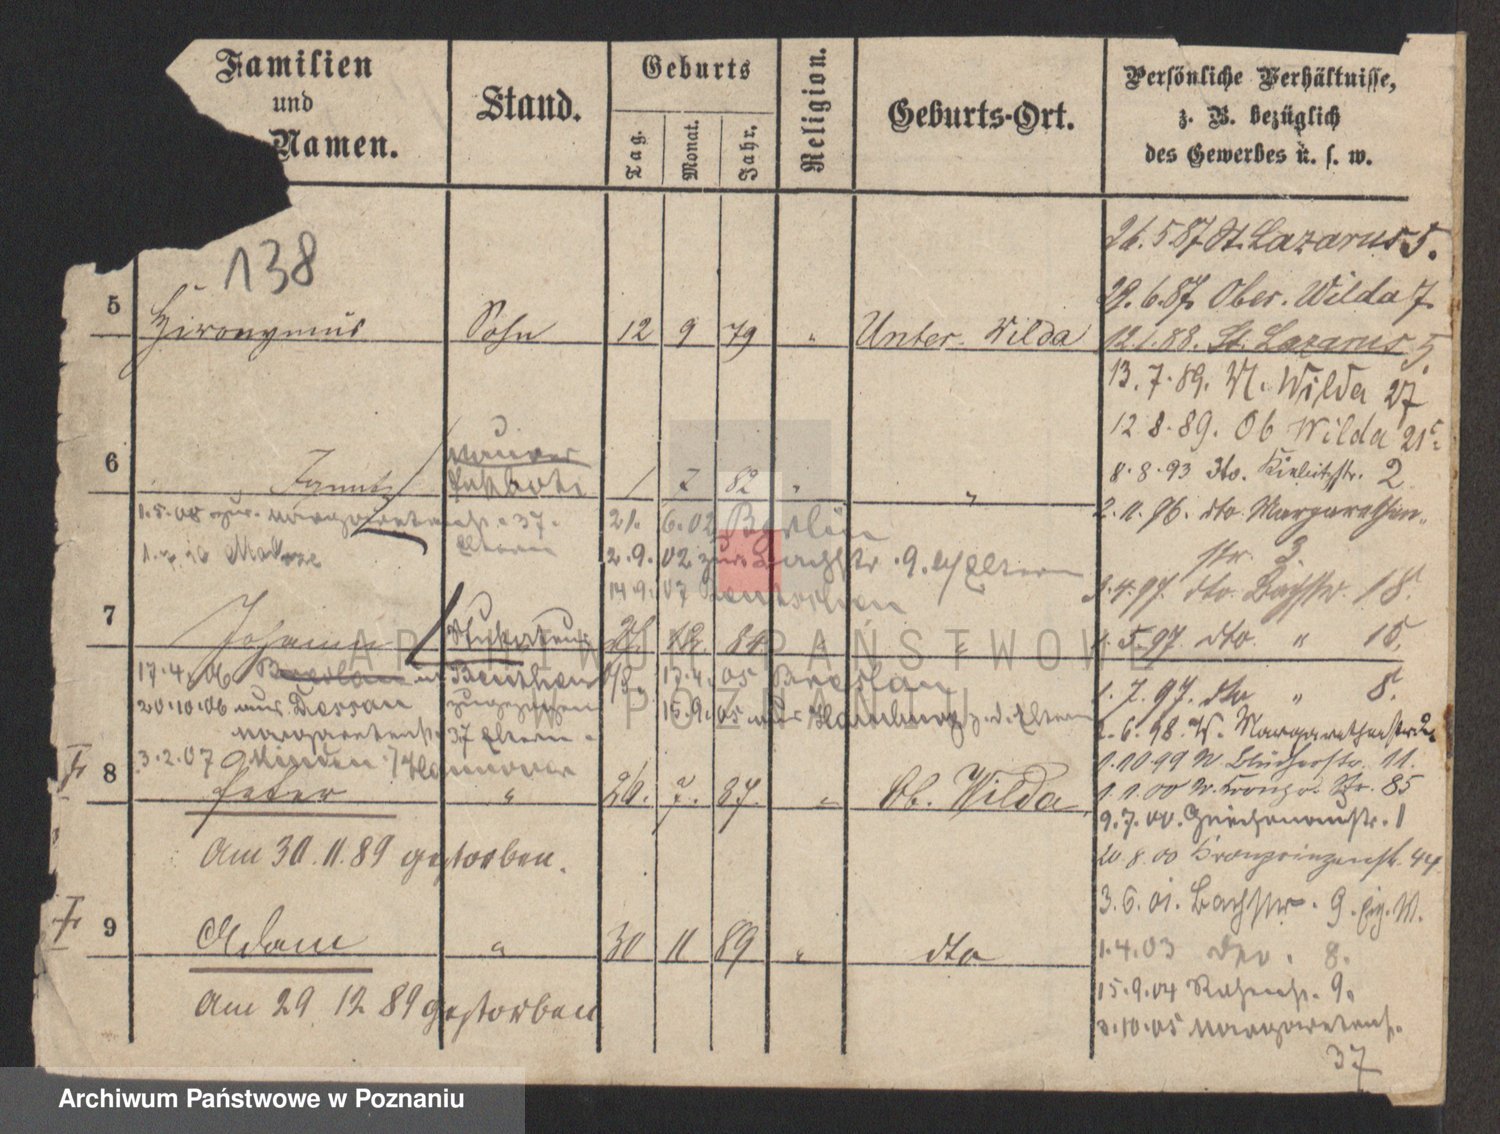 Familien
und
Namen.
Stand.
Geburts
Tag.
Monat.
Jahr.
Religion.
Geburts-Ort.
Persönliche Verhältnisse,
z. B. bezüglich
des Gewerbes u. s. w.
138
26.5 87 St. Lazarus 5.
29.6.87 Ober. Wilda 7.
5 Hieronymus Sohn 12 9 79 " Unter. Wilda 12.1.88. St. Lazarus 5
13.7.89. U. Wilda 27
12.8.89. Ob Wilda 21
8.8.93 dto. 2
6 1 7 82 " "
2.11.96. dto. Margarethen-
str. 3.
1.5.08 zur. Margaretenstr. 37.
Eltern
21. 6.02 Berlin
2.9.02 zur Bachstr. 9. Eltern
14 9. 07
1.4.97. dto. Bachstr. 18.
7 Johann 84 "
1.5.97. dto. " 15.
17.4.06 Breslau Beuthen
17.4.05 Breslau
1.7.97. dto " 8.
20.10.06 aus Dessau zugezogen
Margaretenstr. 37 Eltern.
15.9.05 aus Hamburg z. d. Eltern
2.6.98. W. Margarethenstr 2
3.2.07 Minden / Hannover
1.10 99 W. Blücherstr. 11.
8 Peter " 26. 7. 87. " Ob. Wilda
1.1.00 W. Kronpr. Str. 85
9.7.00. 1
Am 30.11.89 gestorben.
20.8.00 Kronprinzenstr. 44
3.6.01. Bachstr. 9.
9 Adam " 30 11 89 " dto
1.4.03 dto. 8.
Am 29 12 89 gestorben
15.9.04 9.
3.10.05 Margaretenstr.
37
ARCHIWUM PAŃSTWOWE
W POZNANIU
Archiwum Państwowe w Poznaniu